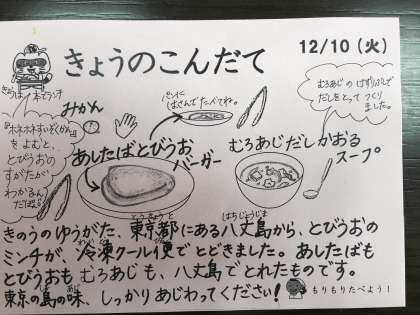 きょうのこんだて
12/10（火）
きょうは 本でランチ
みかん
『ホネホネすいぞくかん』
をよむと、
とびうおの
すがたが
わかるんだ
パンに
はさんでたべてね。
むろあじのけずりぶしで
だしをとって つくり
ました。
あしたばとびうお
バーガー
むろあじだしかおる
スープ
きのうのゆうがた、東京都にある八丈島から、とびうおの
とうきょうと
はちじょうじま
ミンチが、冷凍クール便でとどきました。あしたばも
れいとう
びん
とびうおもむろあじも、八丈島でとれたものです。
東京の島の味、しっかりあじわってください！
しま
あじ
もりもりたべよう！